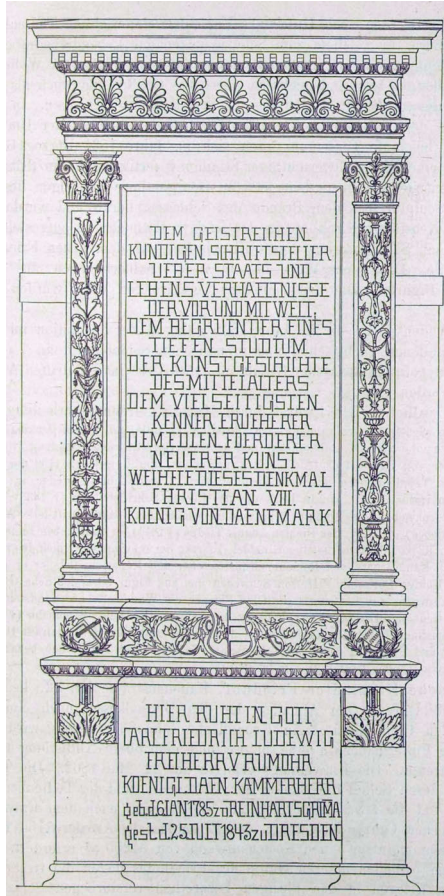 DEM GEISTREICHEN
KUNDIGEN SCHRIFTSTELLER
UEBER STAATS UND
LEBENS VERHAELTNISSE
DER VOR UND MIT WELT.
DEM BEGRUENDER EINES
TIEFEN STUDIUM
DER KUNSTGESHIHTE
DES MITTELALTERS
DEM VIELSEITIGSTEN
KENNER FRUEHERER
DEM EDLEN FOERDERER
NEUERER KUNST
WEIHETE DIESES DENKMAL
CHRISTIAN VIII.
KOENIG VON DAENEMARK.
HIER RUHT IN GOTT
CARL FRIEDRICH LUDEWIG
FREIHERR V RUMOHR
KOENIGL DAEN. KAMMERHERR
geb.d.6IAN.1785.zu REINHARTSGRIMA
gest.d.25.IULI 1843 zu DRESDEN